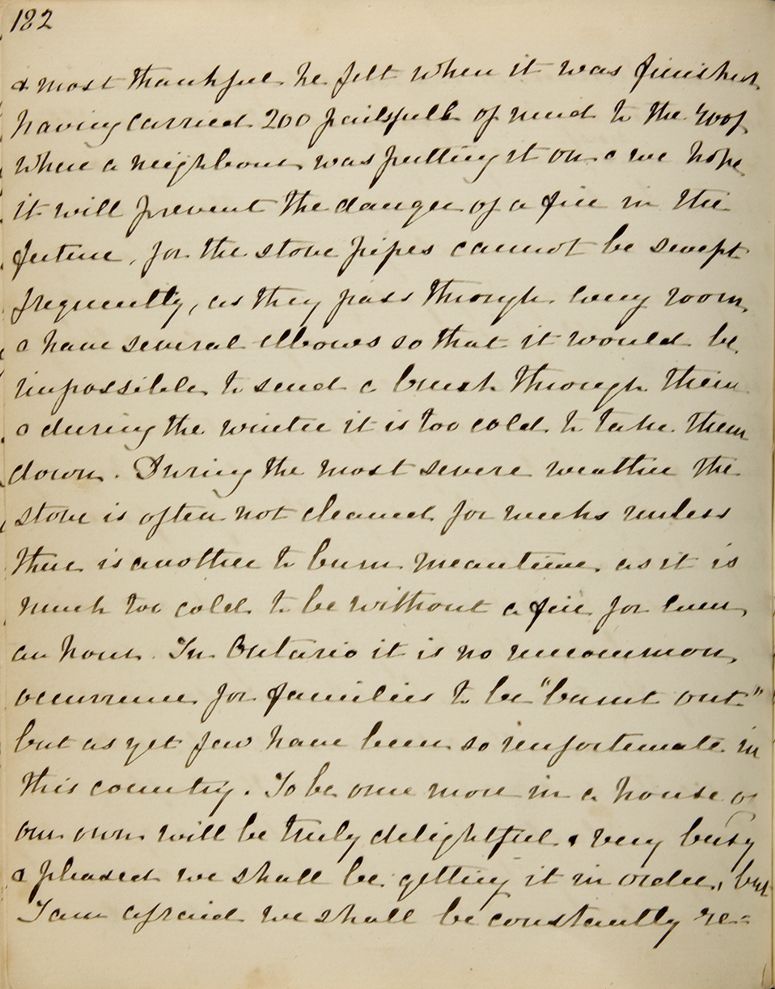 182
& most thankful he felt when it was finished
having carried 200 pailsfull of mud to the roof
where a neighbour was putting it on & we hope
it will prevent the danger of a fire in the
future, for the stove pipes cannot be swept
frequently, as they pass through every room
& have several elbows so that it would be
impossible to send a brush through them
& during the winter it is too cold to take them
down. During the most severe weather the
stove is often not cleaned for weeks unless
there is another to burn meantime, as it is
much too cold to be without a fire for even
an hour. In Ontario it is no uncommon
occurrence for families to be "burnt out"
but as yet few have been so unfortunate in
this country. To be once more in a house of
our own will be truly delightful & very busy
& pleased we shall be getting it in order, but
I am afraid we shall be constantly re=